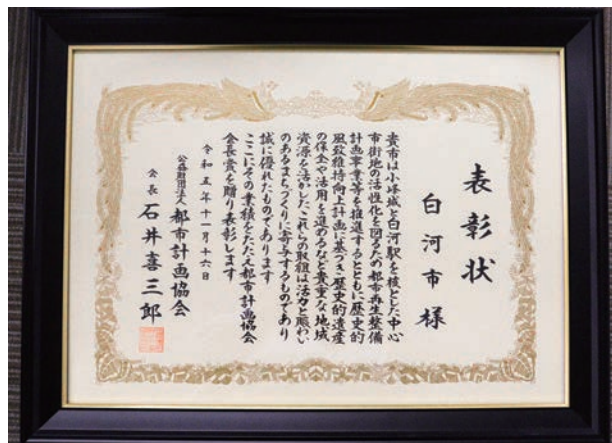 表彰状
白河市様
貴市は小峰城と白河駅を核とした中心
市街地の活性化を図るため都市再生整備
計画事業等を推進するとともに歴史的
風致維持向上計画に基づき歴史的遺産
の保全や活用を進めるなど貴重な地域
資源を活かしたこれらの取組は活力と賑わい
のあるまちづくりに寄与するものであり
誠に優れたものであります
ここにその業績をたたえ都市計画協会
会長賞を贈り表彰します
令和五年十一月十六日
公益財団法人都市計画協会
会長石井喜三郎